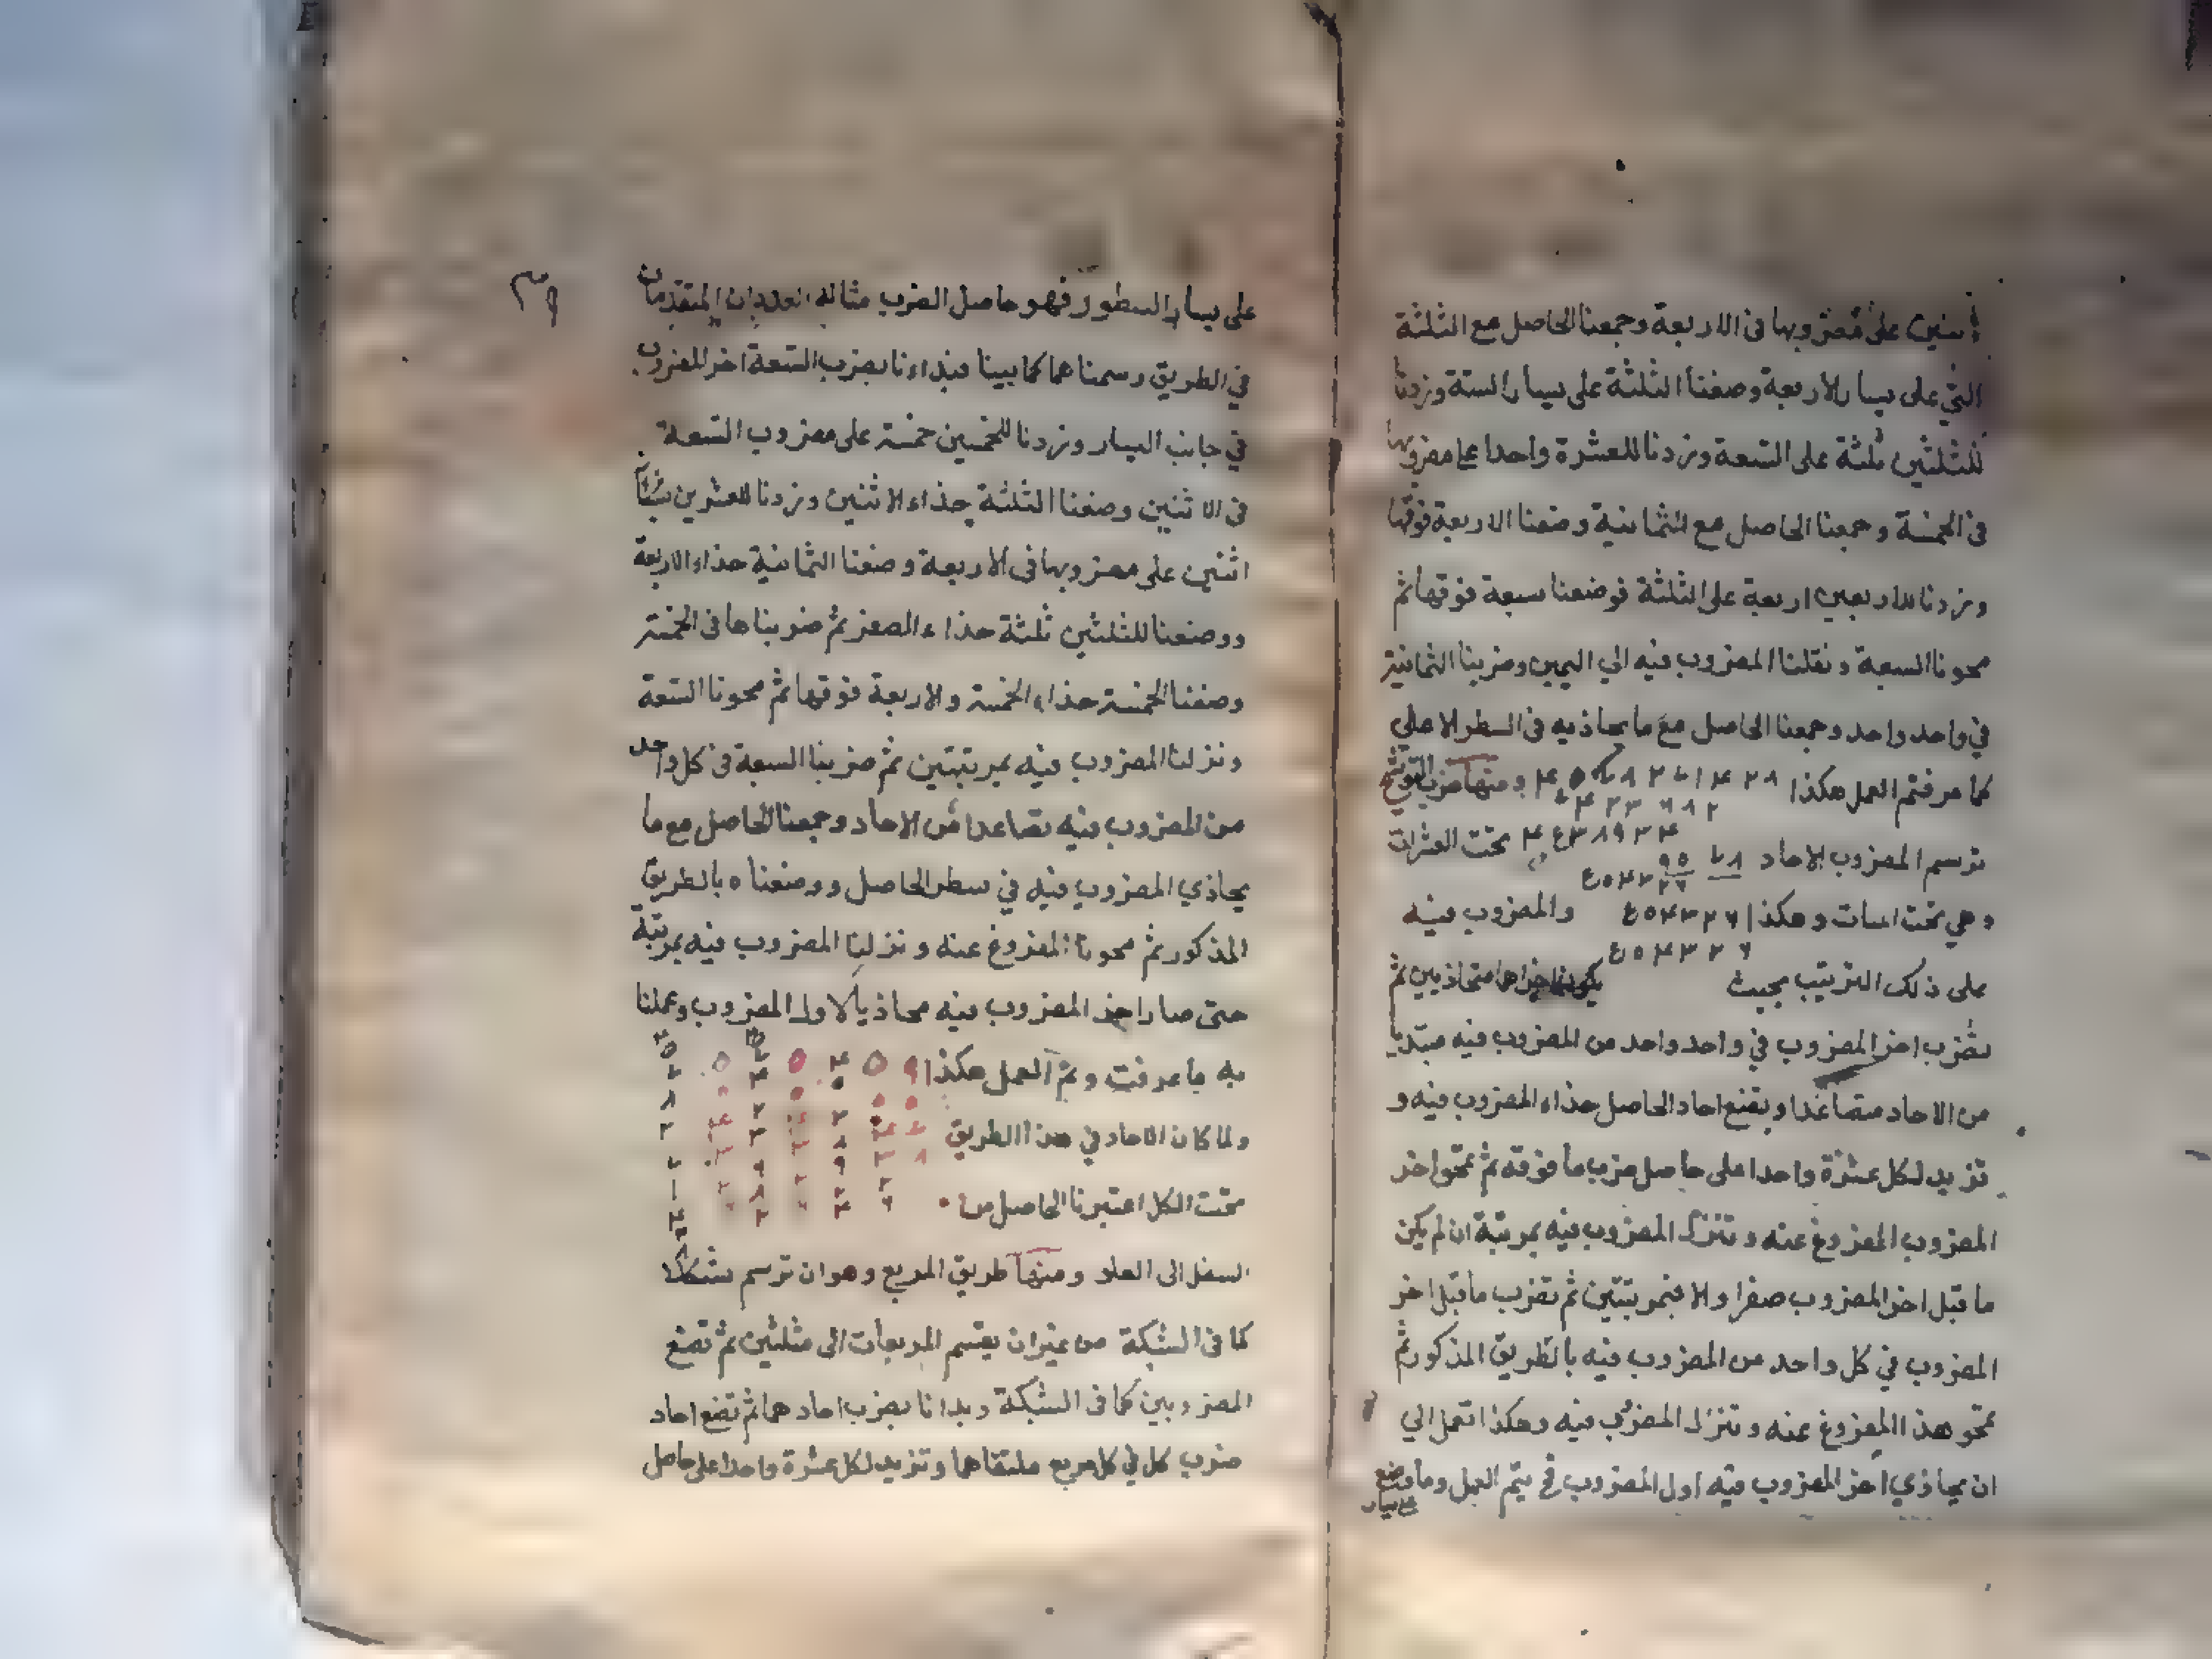 اثنين على مضروبها فى الاربعة وجمعنا الحاصل مع الثلثة
التي على يسار الاربعة وضعنا الثلثة على يسار الستة وزدنا
للثلثين ثلثة على التسعة وزدنا للعشرة واحدا على مضروبها
فى الخمسة وجمعنا الحاصل مع الثمانية وضعنا الاربعة فوقها
وزدنا للاربعين اربعة على الثلثة فوضعنا سبعة فوقها ثم
محونا السبعة ونقلنا المضروب فيه الي اليمين وضربنا الثمانية
في واحد واحد وجمعنا الحاصل مع ما يحاذيه فى السطر الاصلي
كما عرفتم العمل هكذا ومنها ضرب التوشح
ترسم المضروب الاحاد تحت العشرات
وهي تحت المات وهكذا ٤٥۴۳۲۶ والمضروب فيه
على ذلك الترتيب بحيث يكون متحاذيين ثم
نضرب اخر المضروب في واحد واحد من المضروب فيه مبتديا
من الاحاد متصاعدا ويضع احاد الحاصل حذاء المضروب فيه و
تزيد لكل عشرة واحدا على حاصل ضرب ما فوقه ثم تمحو اخر
المضروب المفروغ عنه وتنزل المضروب فيه بمرتبة ان لم يكن
ما قبل اخر المضروب صفرا والا فبمرتبتين ثم تضرب ما قبل اخر
المضروب في كل واحد من المضروب فيه بالطريق المذكور ثم
تمحو هذا المفروغ عنه وتنزل المضروب فيه وهكذا تعمل الي
ان يحاذي اخر المضروب فيه اول المضروب فح يتم العمل وما وضع
على يسار
على يسار السطور فهو حاصل الضرب مثاله العددان المتقدمان
في الطريق رسمناهما كما بينا فبداءنا بضرب التسعة اخر المضروب
في جانب اليسار وزدنا للخمسين خمسة على مضروب التسعة
فى الاثنين وضعنا الثلثة حذاء الاثنين وزدنا للعشرين
اثنين على مضروبها فى الاربعة وضعنا الثمانية حذاء الاربعة
ووضعنا للثلثين ثلثة حذاء الصفر ثم ضربناها فى الخمسة
وضعنا الخمسة حذاء الخمسة والاربعة فوقها ثم محونا التسعة
ونزلنا المضروب فيه بمرتبتين ثم ضربنا السبعة فى كل واحد
من المضروب فيه تصاعدا من الاحاد وجمعنا الحاصل مع ما
يحاذي المضروب فيه في سطر الحاصل ووضعناه بالطريق
المذكور ثم محونا المفروغ عنه ونزلنا المضروب فيه بمرتبة
حتى صار اخر المضروب فيه محاذيا لاول المضروب وعملنا
به ما عرفت وتم العمل هكذا
ولما كان الاحاد في هذا الطريق
تحت الكل اعتبرنا الحاصل من
السفل الى العلو ومنها طريق المربع وهو ان ترسم شكلا
كما فى الشبكة من غير ان يقسم المربعات الى مثلثين ثم تضع
المضروبين كما فى الشبكة وبدانا بضرب احادهما ثم تضع احاد
ضرب كل في كل مربع ملتقاهما وتزيد لكل عشرة واحدا على حاصل